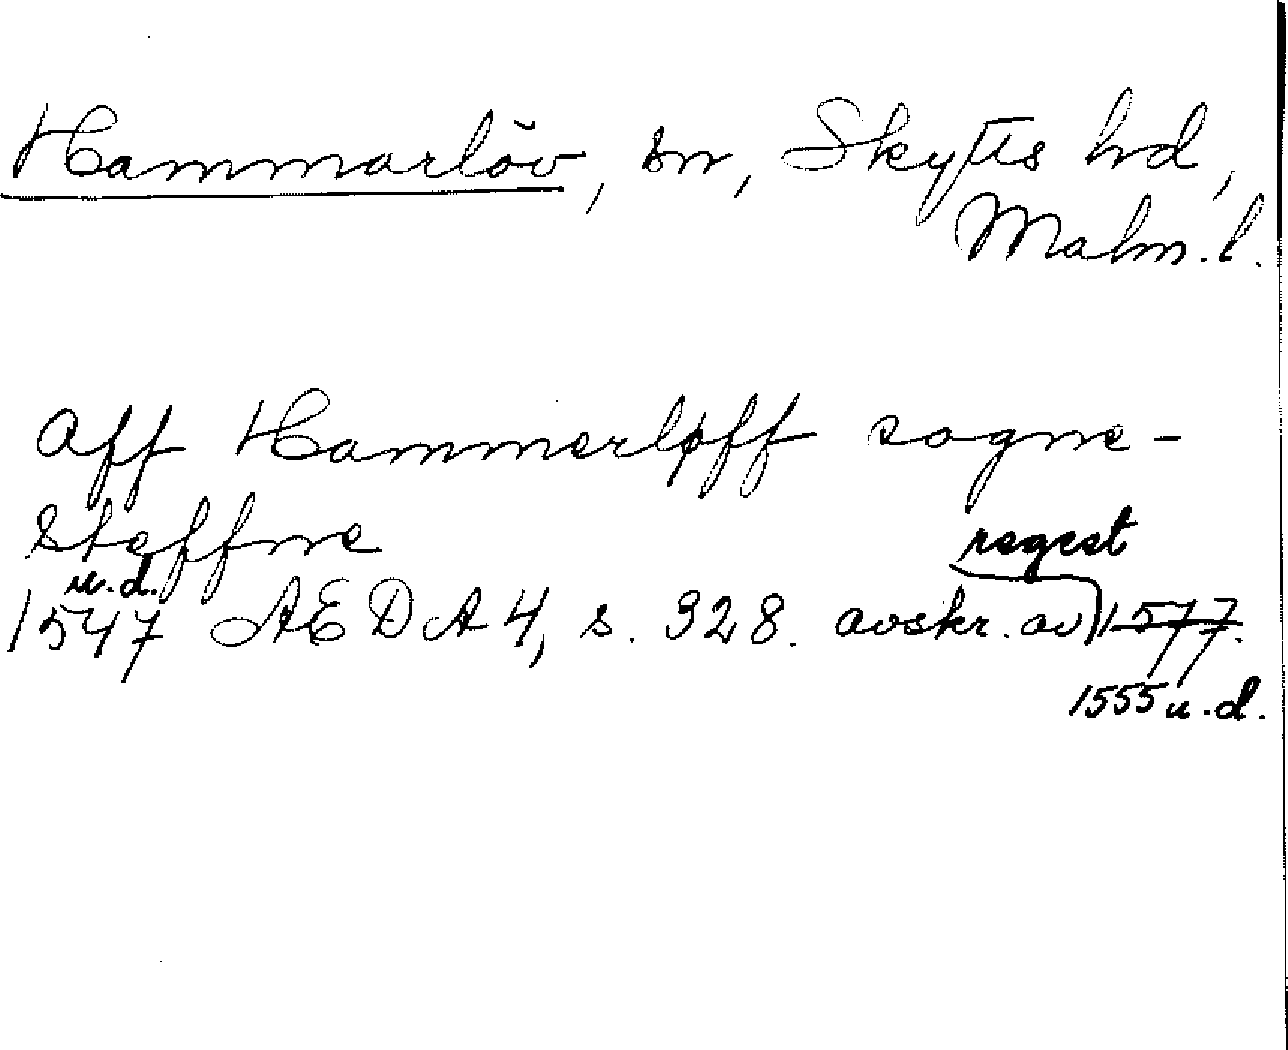 Hammarlöv, sn, Skytts hd,
Malm.l.
Aff Hammerløff sogne-
steffne
regest
u.d.
1547 AEDA 4, s. 328. avskr. av 1577.
1555 u.d.